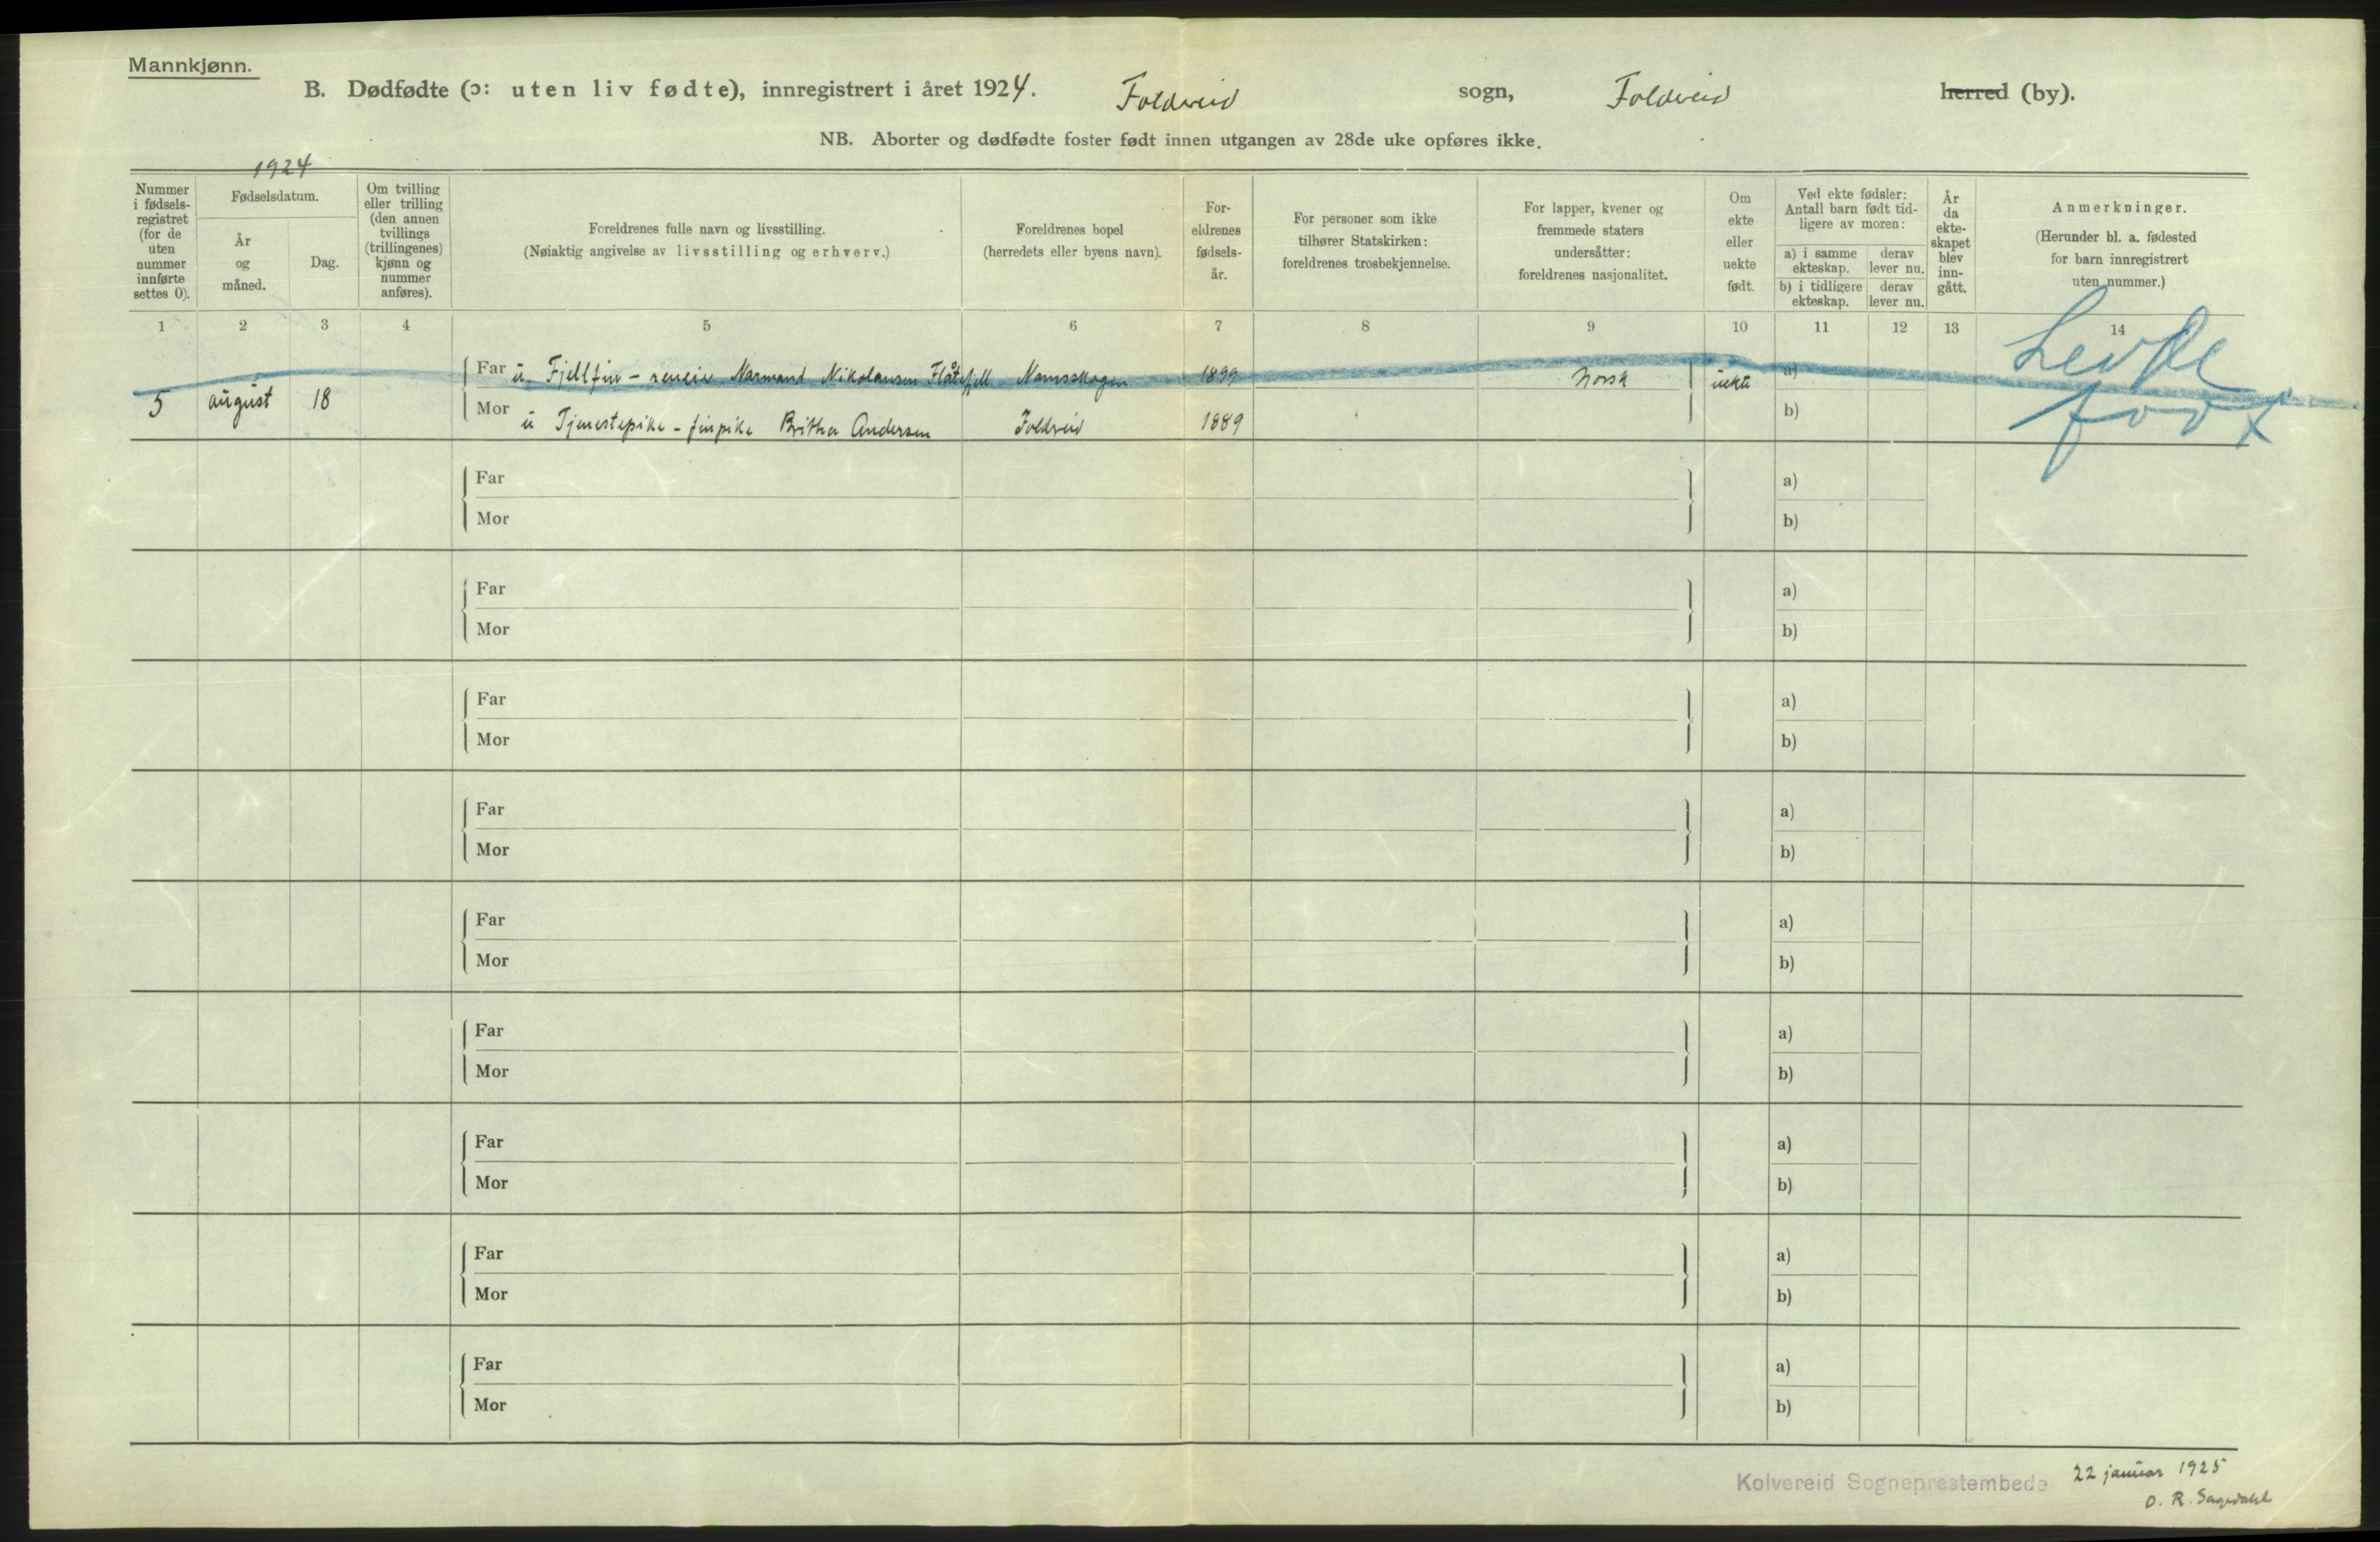 Mannkjønn.
B. Dødfødte (ɔ: uten liv fødte), innregistrert i året 1924. Foldereid sogn, Foldereid herred (by).
NB. Aborter og dødfødte foster født innen utgangen av 28de uke opføres ikke.
1924
Nummer
i fødsels-
registret
(for de
uten
nummer
innførte
settes 0).
Fødselsdatum.
År
og
måned.
Dag.
Om tvilling
eller trilling
(den annen
tvillings
(trillingenes)
kjønn og
nummer
anføres).
Foreldrenes fulle navn og livsstilling.
(Nøiaktig angivelse av livsstilling og erhverv.)
Foreldrenes bopel
(herredets eller byens navn).
For-
eldrenes
fødsels-
år.
For personer som ikke
tilhører Statskirken:
foreldrenes trosbekjennelse.
For lapper, kvener og
fremmede staters
undersåtter:
foreldrenes nasjonalitet.
Om
ekte
eller
uekte
født.
Ved ekte fødsler:
Antall barn født tid-
ligere av moren:
a) i samme
ekteskap.
derav
lever nu.
b) i tidligere
ekteskap.
derav
lever nu.
År
da
ekte-
skapet
blev
inn-
gått.
Anmerkninger.
(Herunder bl. a. fødested
for barn innregistrert
uten nummer.)
1 2 3 4 5 6 7 8 9 10 11 12 13 14
Far u Fjellfin - reneier Narmand Nikolaisen Flåtefjell Namsskogen 1899 Norsk uekte a) Levde
5 august 18
Mor u Tjenestepike - finpike Britha Andersen Foldreid 1889 b) født
Far a)
Mor b)
Far a)
Mor b)
Far a)
Mor b)
Far a)
Mor b)
Far a)
Mor b)
Far a)
Mor b)
Far a)
Mor b)
Far a)
Mor b)
Far a)
Mor b)
Kolvereid Sogneprestembede 22 januar 1925
O. R. Sagedahl